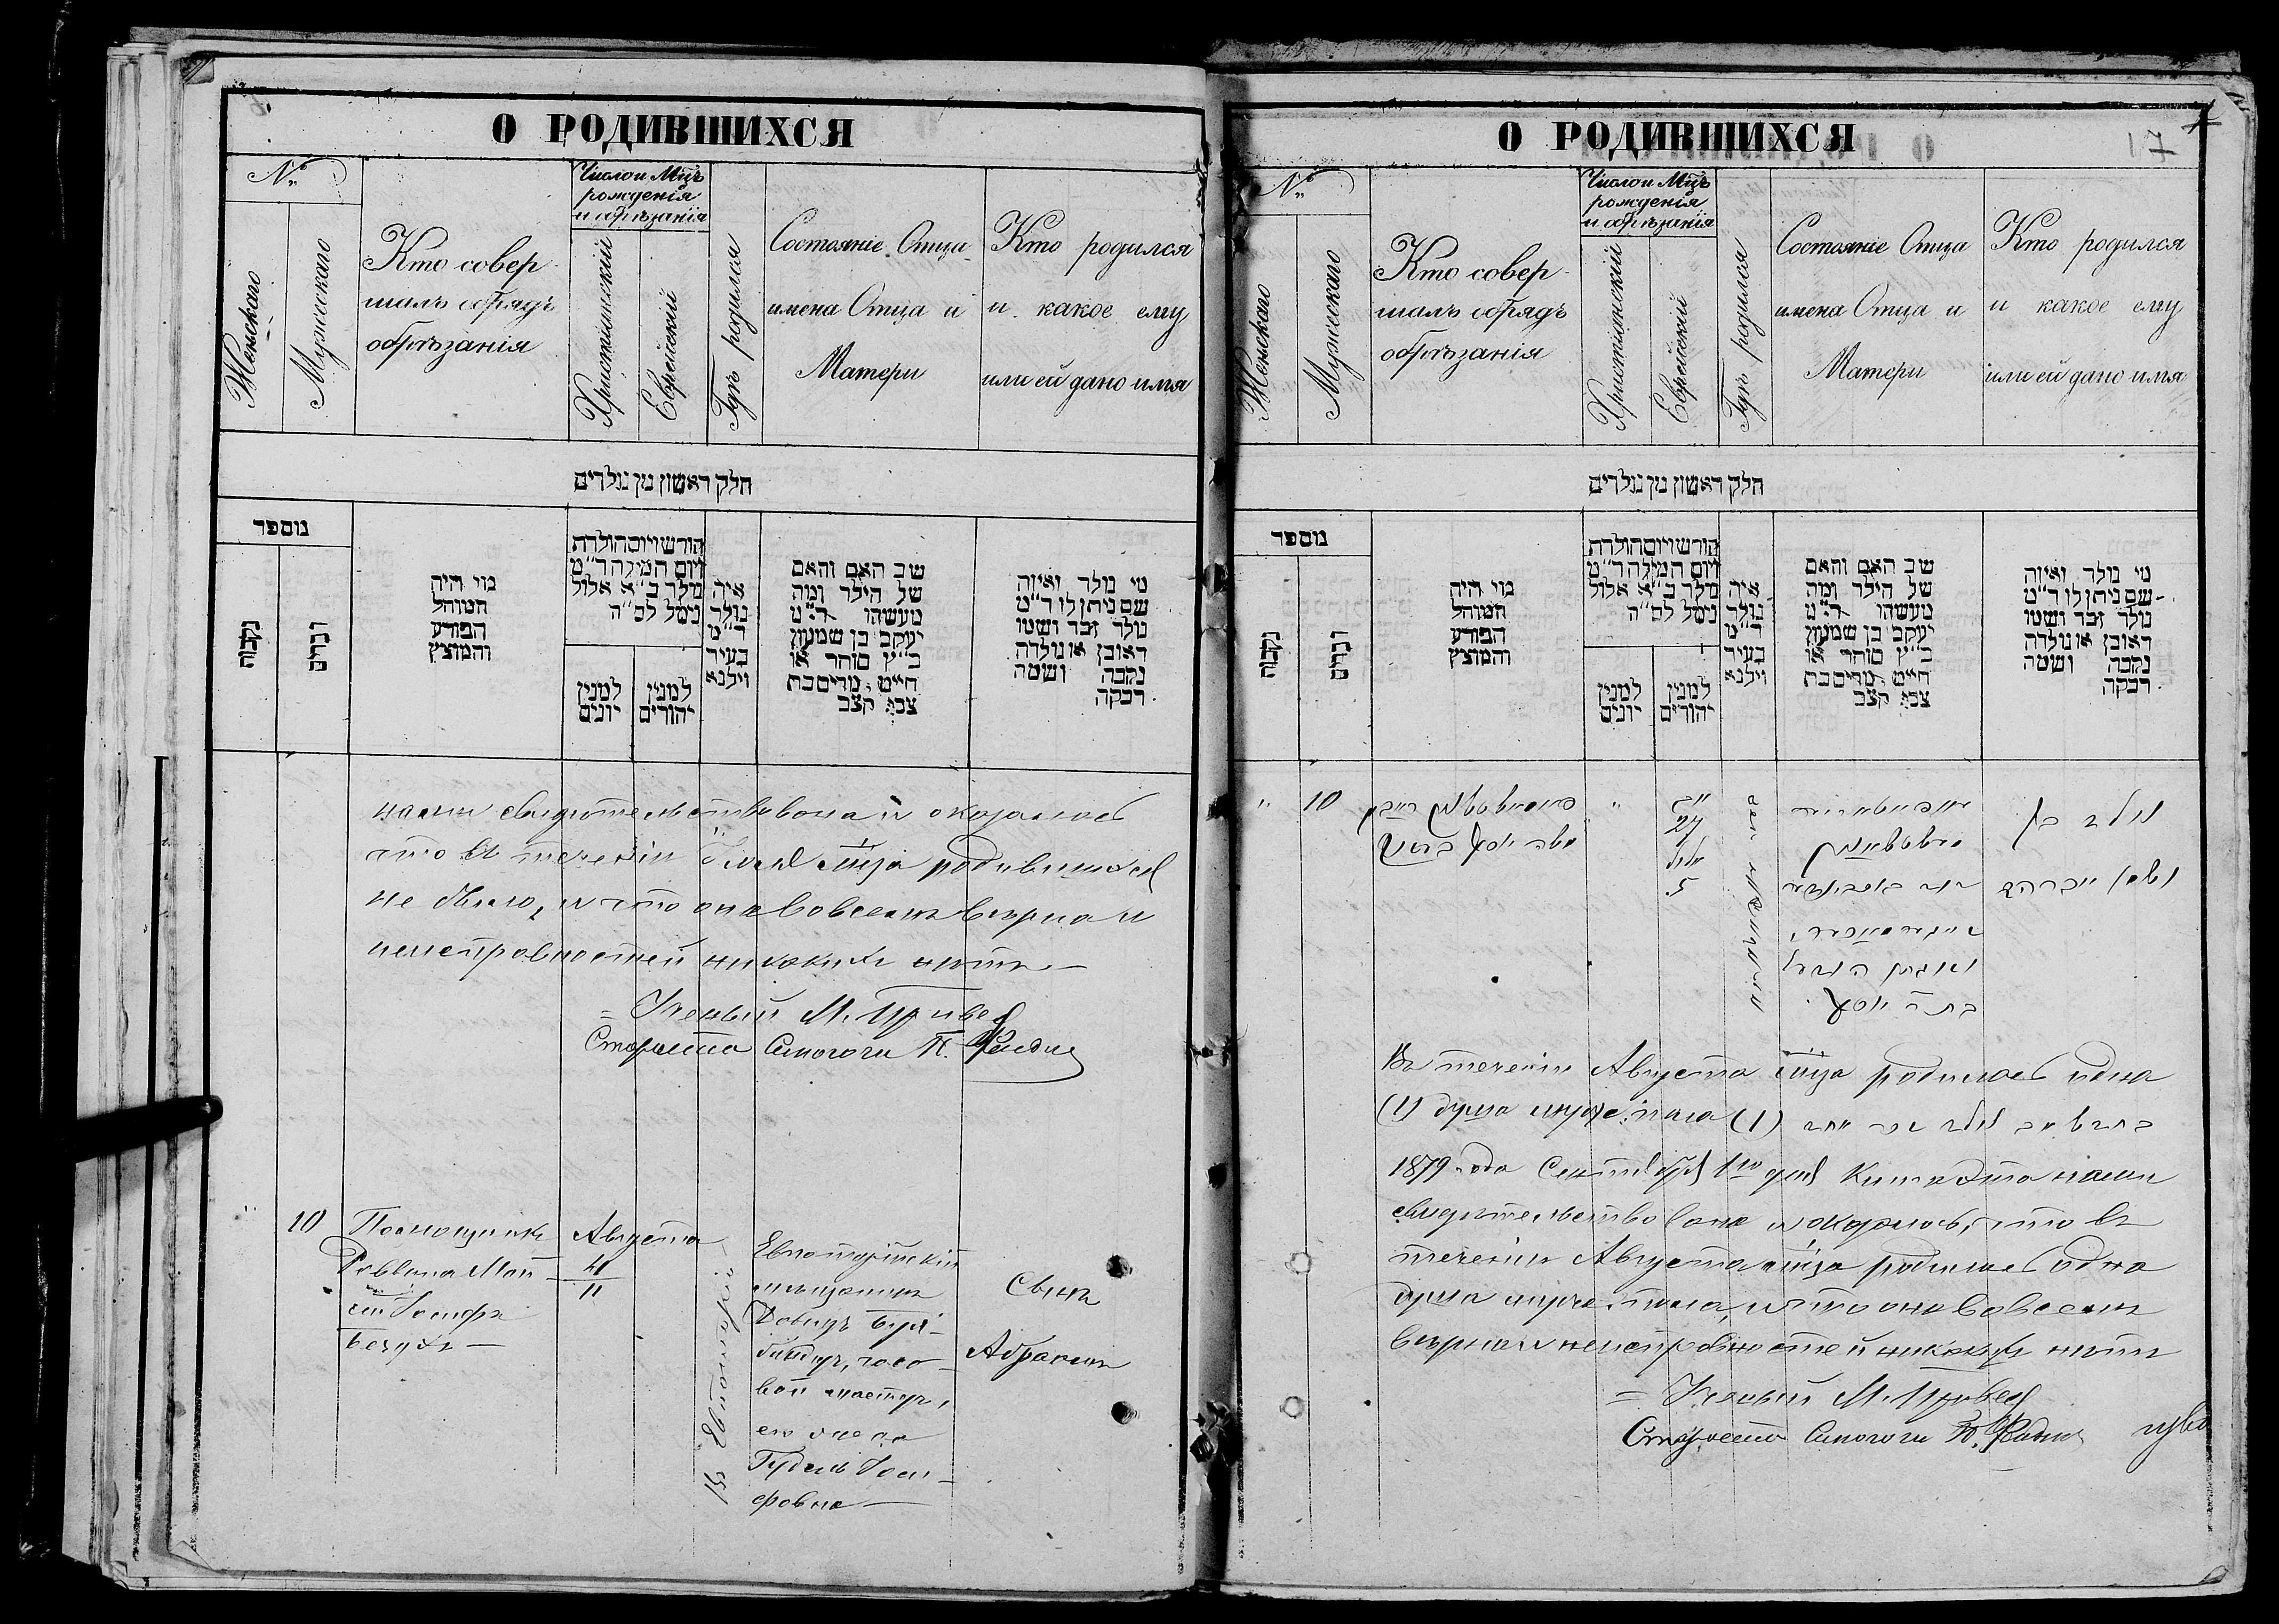 О РОДИВШИХСЯ
№
Женскаго
Мужескаго
Кто совер-
шалъ обрядъ
обрѣзанія
Число и Мцъ
рожденія
и обрѣзанія
Христіанскій
Еврейскій
Гдѣ родился
Состояніе Отца
имена Отца и
Матери
Кто родился
и какое ему
или ей дано имя
חלק ראשון מן נולדים
מספר
נקבות
זכרים
מי היה
המוהל
הפורע
והמוצץ
חורש ויום הולדת
ויום המילה ד"מ
נולד כ"א אלול
נימל לס"ה
למנין
יונים
למנין
יהודים
איה
נולד
ד"מ
בעיר
ווילנא
שב האם והאם
של הילד ומה
מעשהו ד"מ
יעקב בן שמעון
כ"ץ סוחר או
חייט, מרים בת
צבי קצב
מי נולד ואיזה
שם ניתן לו ד"מ
נולד זכר ושמו
ראובן או נולדה
נקבה ושמה
רבקה
нами свидѣтельствована и оказалось
что въ теченіи Іюля мѣца родившихся
не было, и что она во всемъ вѣрна и
неисправностей никакихъ нѣтъ
Ученый М.
Староста Синагоги
10
Помощникъ
Раввина Мои-
сей Іосифъ
Августа
4
11
В Евпаторіи
Евпаторійскій
мѣщанинъ
Довидъ
часо-
вой мастеръ,
его жена
Гудель Іоси-
фовна
Сынъ
Абрамъ
О РОДИВШИХСЯ
17
№
Женскаго
Мужескаго
Кто совер-
шалъ обрядъ
обрѣзанія
Число и Мцъ
рожденія
и обрѣзанія
Христіанскій
Еврейскій
Гдѣ родился
Состояніе Отца
имена Отца и
Матери
Кто родился
и какое ему
или ей дано имя
חלק ראשון מן נולדים
מספר
נקבות
זכרים
מי היה
המוהל
הפורע
והמוצץ
חורש ויום הולדת
ויום המילה ד"מ
נולד כ"א אלול
נימל לס"ה
למנין
יונים
למנין
יהודים
איה
נולד
ד"מ
בעיר
ווילנא
שב האם והאם
של הילד ומה
מעשהו ד"מ
יעקב בן שמעון
כ"ץ סוחר או
חייט, מרים בת
צבי קצב
מי נולד ואיזה
שם ניתן לו ד"מ
נולד זכר ושמו
ראובן או נולדה
נקבה ושמה
רבקה
10
משה יוסף
נולד בן
ושמו אברהם
בת ר' יוסף
Въ теченіи Августа мѣца родилась одна
(1) душа муж: пола (1)
1879 года Сентября 1го дня Книга эта нами
свидѣтельствована и оказалось, что въ
теченіи Августа мѣца родилась одна
душа муж: пола, и что она во всемъ
вѣрна и неисправностей никакихъ нѣтъ
Ученый М.
Староста Синагоги